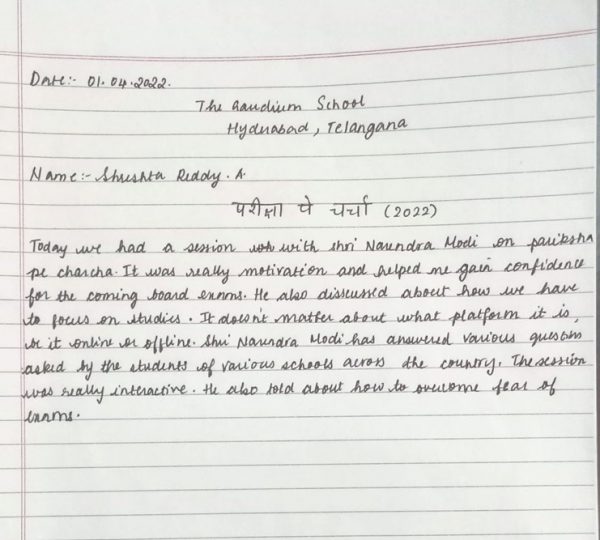 Date:- 01.04.2022.
The Gaudium School
Hyderabad, Telangana
Name:- Shreshta Reddy. A.
परीक्षा पे चर्चा (2022)
Today we had a session with shri Narendra Modi on pariksha
pe charcha. It was really motivation and helped me gain confidence
for the coming board exams. He also disscussed about how we have
to focus on studies. It doesn't matter about what platform it is,
be it online or offline. Shri Narendra Modi has answered various
asked by the students of various schools across the country. The session
was really interactive. He also told about how to overcome fear of
exams.